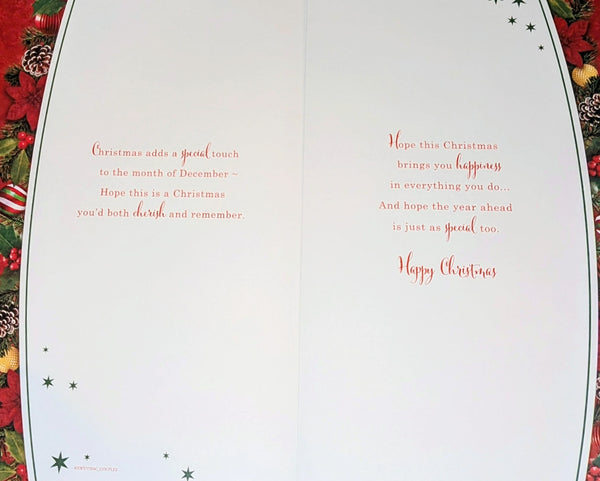 Christmas adds a special touch
to the month of December ~
Hope this is a Christmas
you'd both cherish and remember.
Hope this Christmas
brings you happiness
in everything you do...
And hope the year ahead
is just as special too.
Happy Christmas